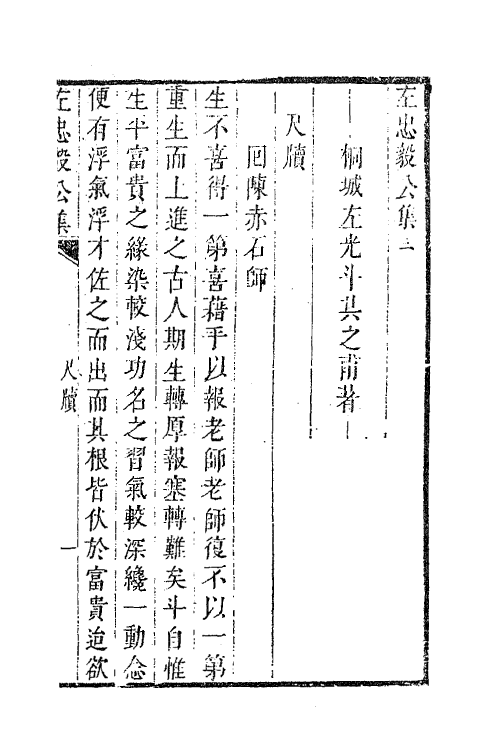 左忠毅公集三
桐城左光斗共之甫著
尺牘
囘陳赤石師
生不喜得一第喜藉乎以報老師老師復不以一第
重生而上進之古人期生轉厚報塞轉難矣斗自惟
生平富貴之緣染較淺功名之習氣較深纔一動念
便有浮氣浮才佐之而出而其根皆伏於富貴迨欲
左忠毅公集
尺牘
一